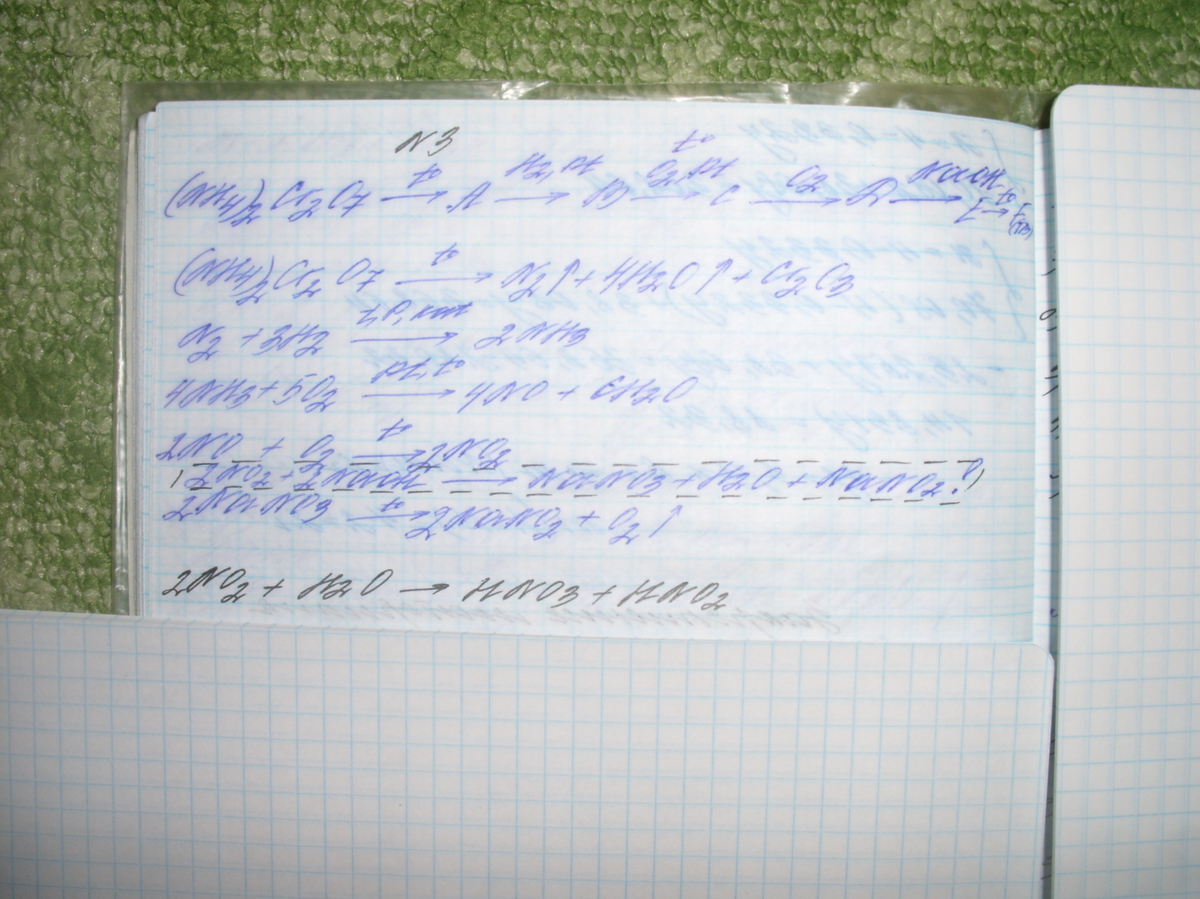 N3
(NH4)2Cr2O7 —t°→ A —H2, pt→ B —O2, pt t°→ C —O2→ D —NaOH→ E —t°→ F
(NH4)2Cr2O7 —t°→ N2↑ + 4H2O↑ + Cr2O3
N2 + 3H2 —t, P, kat→ 2NH3
4NH3 + 5O2 —pt, t°→ 4NO + 6H2O
2NO + O2 —t°→ 2NO2
(2NO2 + 2NaOH → NaNO3 + H2O + NaNO2?)
2NaNO3 —t°→ 2NaNO2 + O2↑
2NO2 + H2O → HNO3 + HNO2